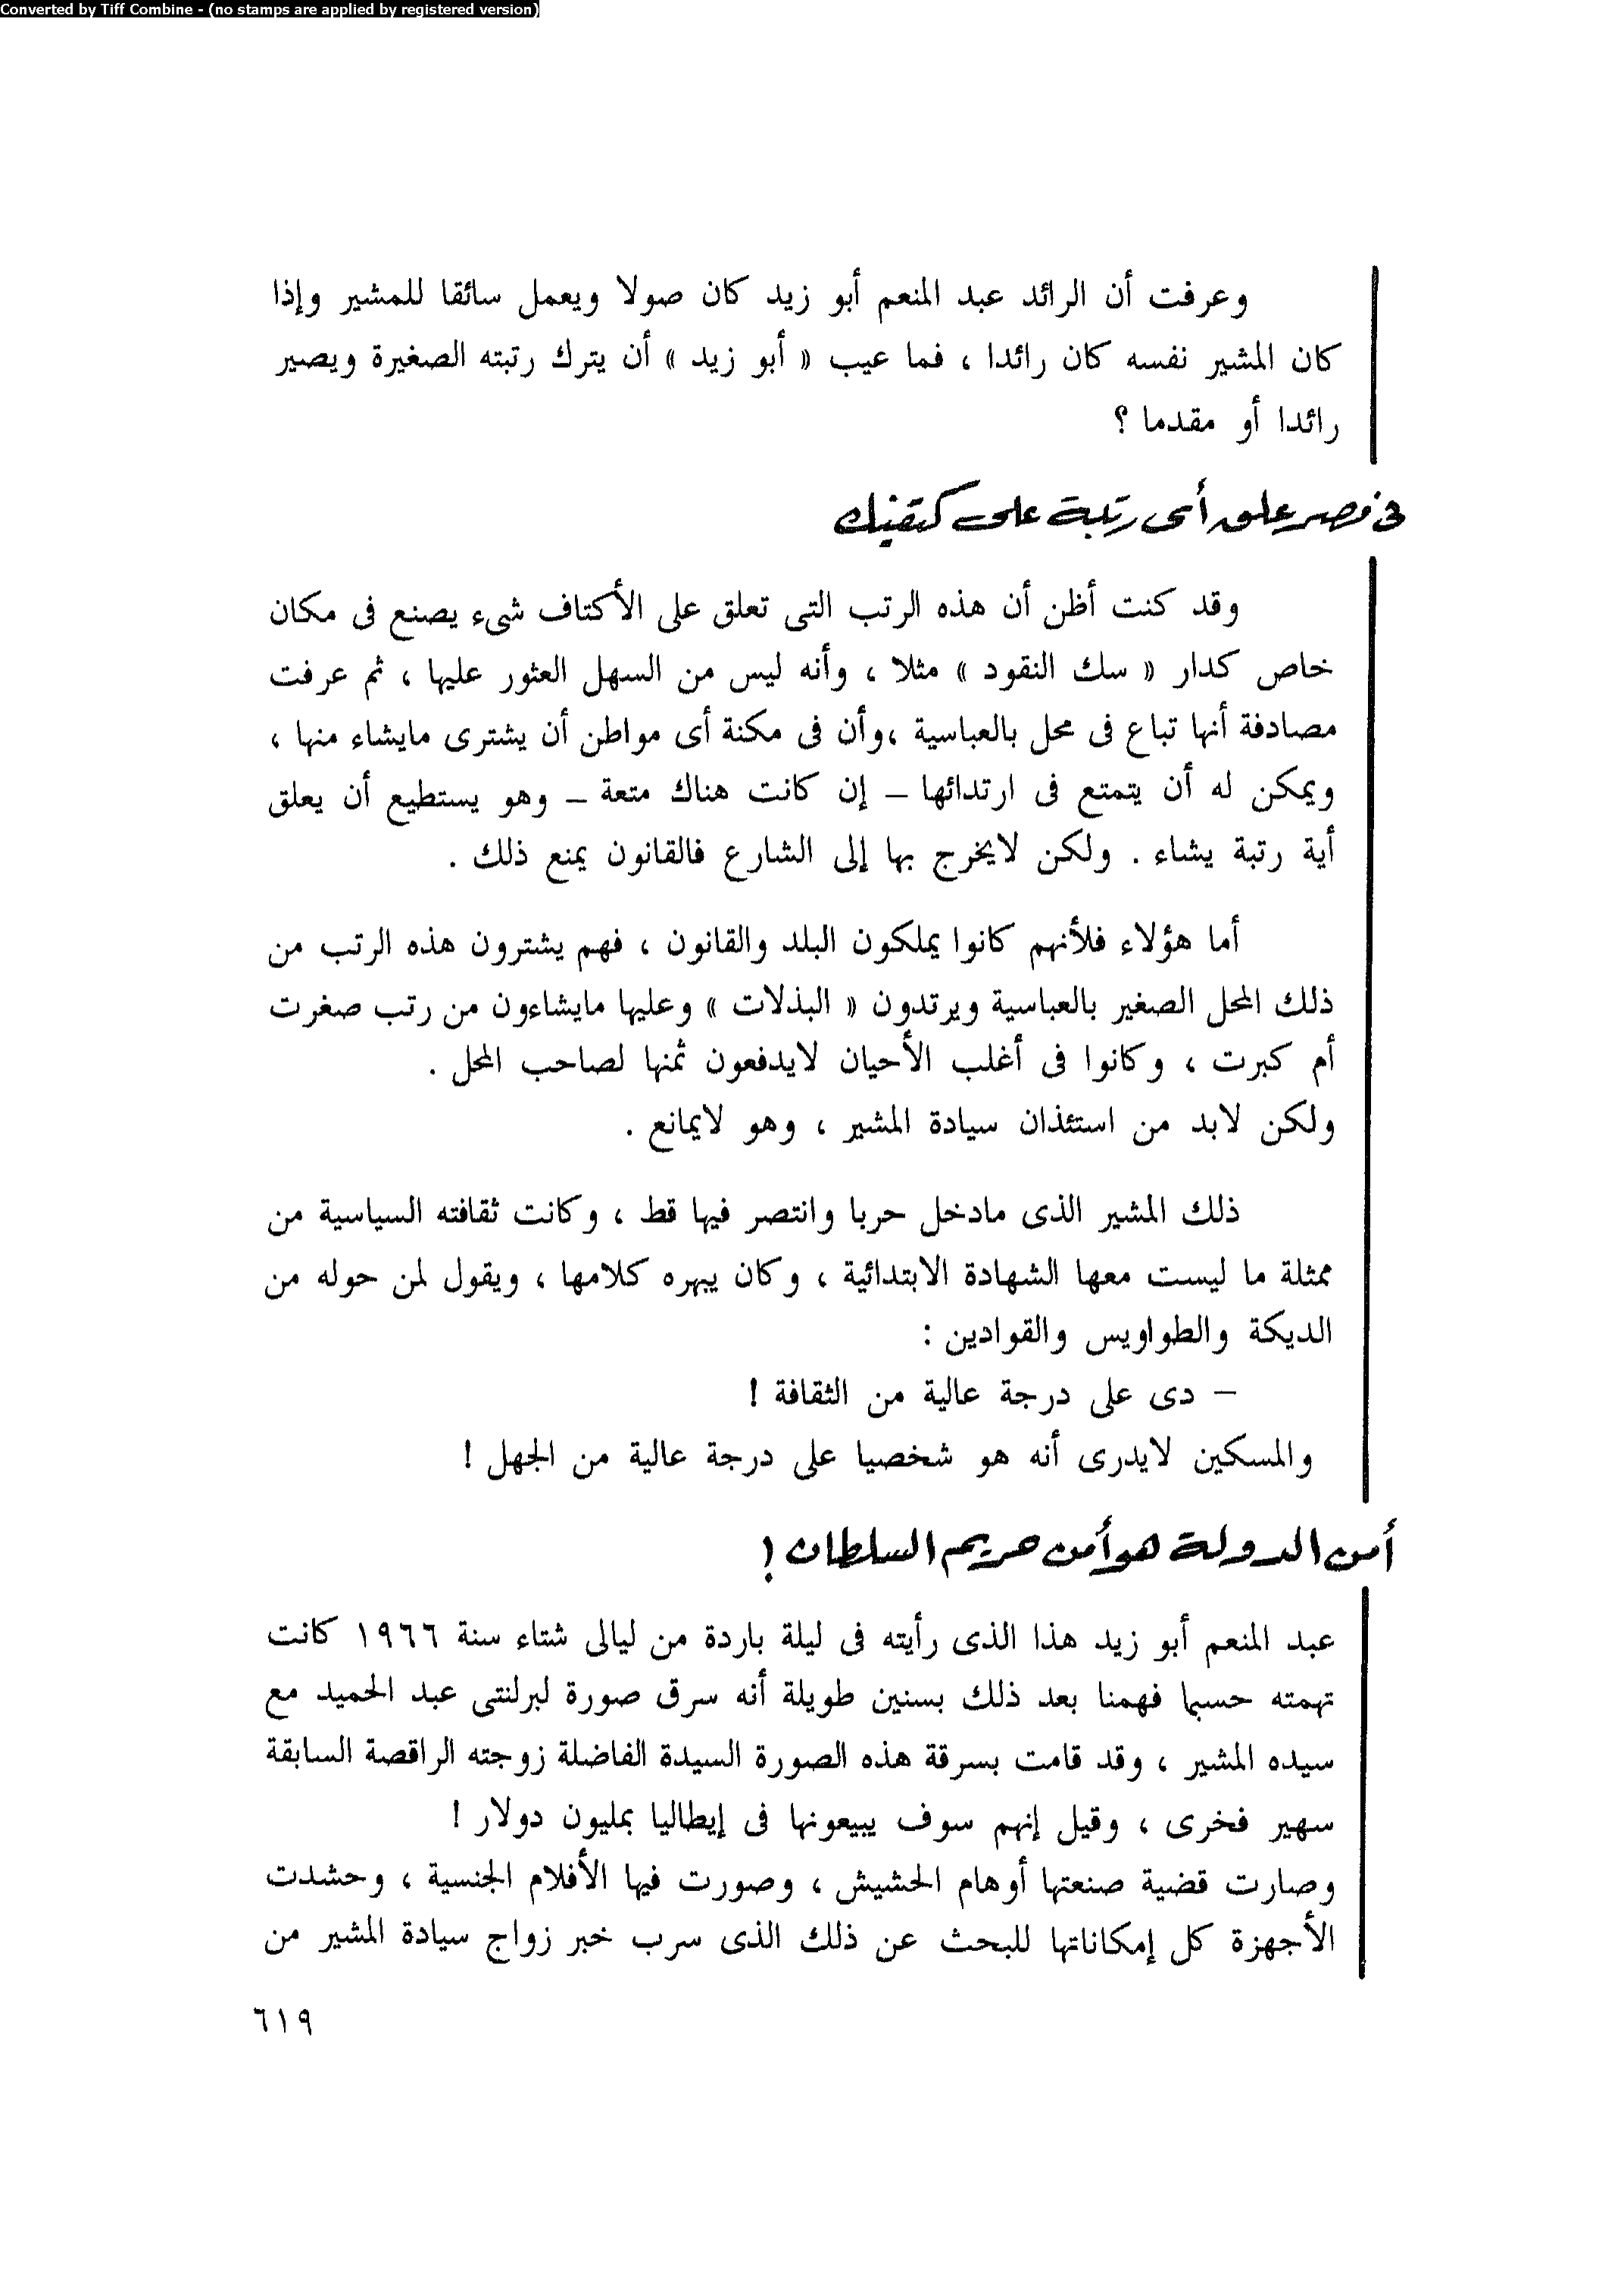 Converted by Tiff Combine - (no stamps are applied by registered version)
وعرفت أن الرائد عبد المنعم أبو زيد كان صولا ويعمل سائقا للمشير وإذا
كان المشير نفسه كان رائدا ، فما عيب « أبو زيد » أن يترك رتبته الصغيرة ويصير
رائدا أو مقدما ؟
فى مصر علق أى رتبة على كتفيك
وقد كنت أظن أن هذه الرتب التى تعلق على الأكتاف شىء يصنع فى مكان
خاص كدار « سك النقود » مثلا ، وأنه ليس من السهل العثور عليها ، ثم عرفت
مصادفة أنها تباع فى محل بالعباسية ،وأن فى مكنة أى مواطن أن يشترى مايشاء منها ،
ويمكن له أن يتمتع فى ارتدائها – إن كانت هناك متعة – وهو يستطيع أن يعلق
أية رتبة يشاء . ولكن لايخرج بها إلى الشارع فالقانون يمنع ذلك .
أما هؤلاء فلأنهم كانوا يملكون البلد والقانون ، فهم يشترون هذه الرتب من
ذلك المحل الصغير بالعباسية ويرتدون « البذلات » وعليها مايشاءون من رتب صغرت
أم كبرت ، وكانوا فى أغلب الأحيان لايدفعون ثمنها لصاحب المحل .
ولكن لابد من استئذان سيادة المشير ، وهو لايمانع .
ذلك المشير الذى مادخل حربا وانتصر فيها قط ، وكانت ثقافته السياسية من
ممثلة ما ليست معها الشهادة الابتدائية ، وكان يبهره كلامها ، ويقول لمن حوله من
الديكة والطواويس والقوادين :
– دى على درجة عالية من الثقافة !
والمسكين لايدرى أنه هو شخصيا على درجة عالية من الجهل !
أمن الدولة هو أمن حريم السلطان !
عبد المنعم أبو زيد هذا الذى رأيته فى ليلة باردة من ليالى شتاء سنة ١٩٦٦ كانت
تهمته حسبما فهمنا بعد ذلك بسنين طويلة أنه سرق صورة لبرلنتى عبد الحميد مع
سيده المشير ، وقد قامت بسرقة هذه الصورة السيدة الفاضلة زوجته الراقصة السابقة
سهير فخرى ، وقيل إنهم سوف يبيعونها فى إيطاليا بمليون دولار !
وصارت قضية صنعتها أوهام الحشيش ، وصورت فيها الأفلام الجنسية ، وحشدت
الأجهزة كل إمكاناتها للبحث عن ذلك الذى سرب خبر زواج سيادة المشير من
٦١٩